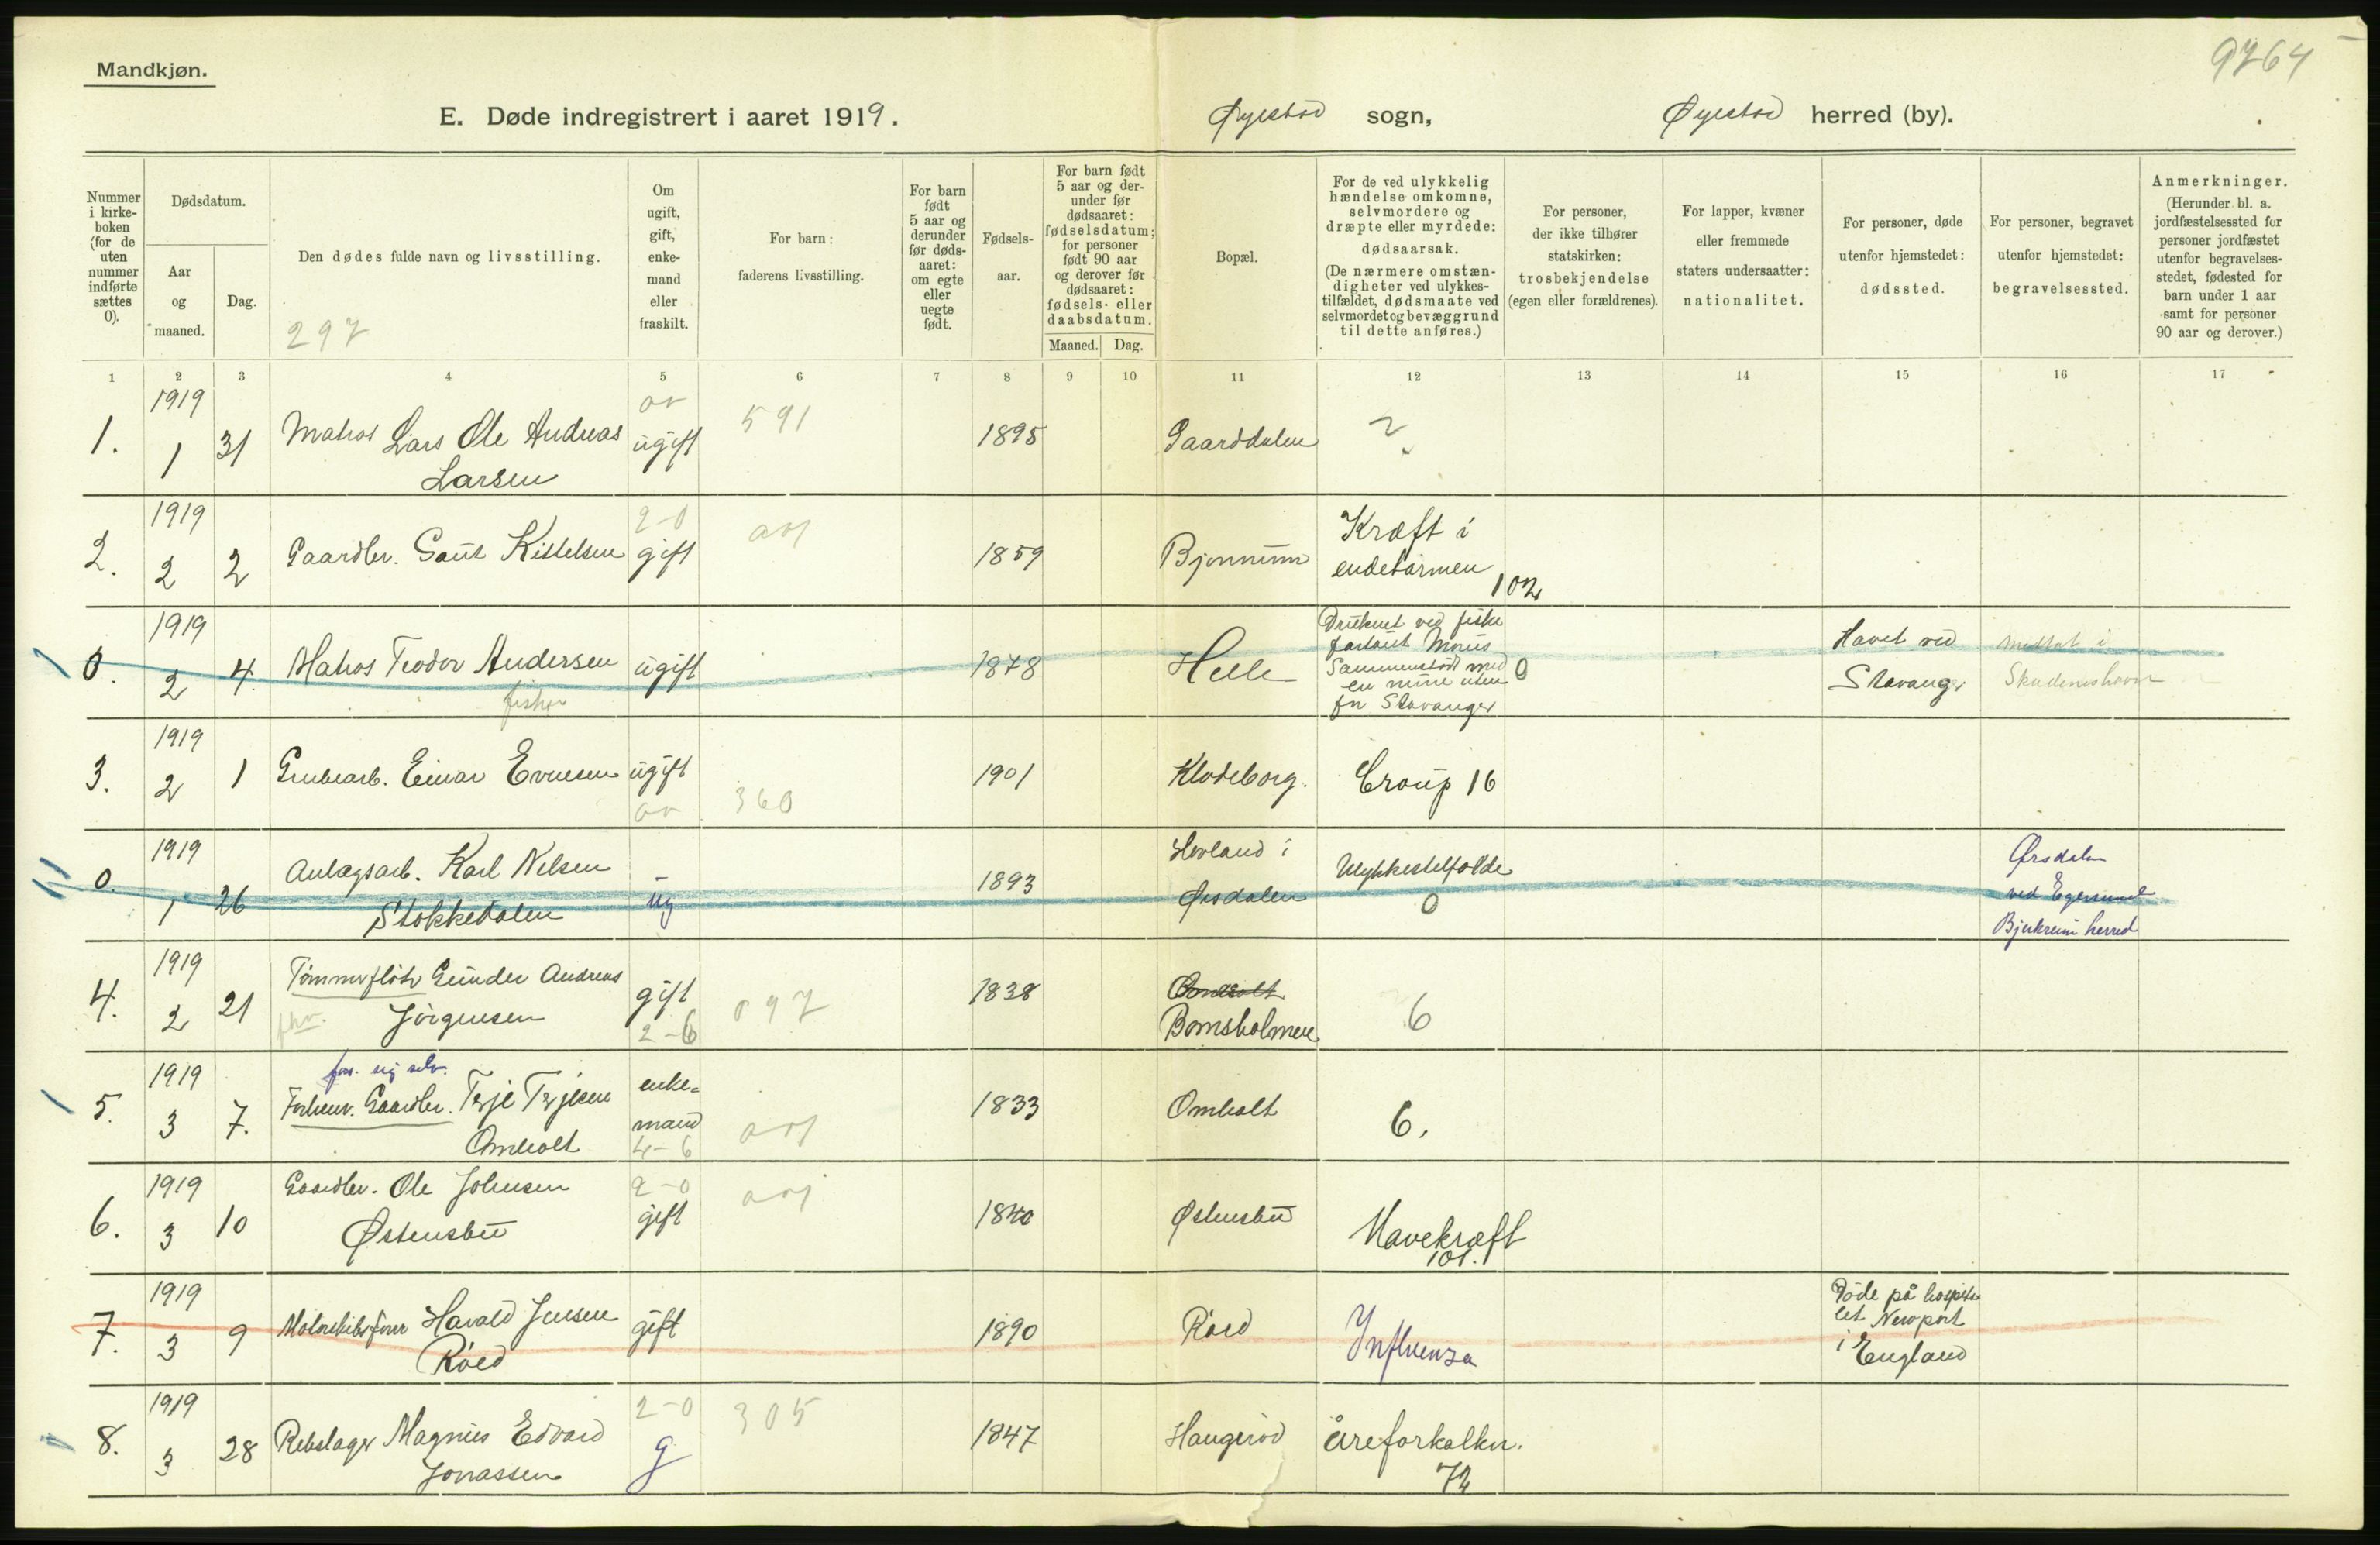 9764
Mandkjøn.
E. Døde indregistrert i aaret 1919.
Øyestad sogn,
Øyestad herred (by).
Nummer i kirkeboken (for de uten nummer indførte sættes 0).
Dødsdatum.
Aar og maaned.
Dag.
Den dødes fulde navn og livsstilling.
297
Om ugift, gift, enkemand eller fraskilt.
For barn: faderens livsstilling.
For barn født 5 aar og derunder før dødsaaret: om egte eller uegte født.
Fødselsaar.
For barn født 5 aar og derunder før dødsaaret: fødselsdatum; for personer født 90 aar og derover før dødsaaret: fødsels- eller daabsdatum.
Maaned. Dag.
Bopæl.
For de ved ulykkelig hændelse omkomne, selvmordere og dræpte eller myrdede: dødsaarsak.
(De nærmere omstændigheter ved ulykkestilfældet, dødsmaate ved selvmordet og bevæggrund til dette anføres.)
For personer, der ikke tilhører statskirken: trosbekjendelse (egen eller forældrenes).
For lapper, kvæner eller fremmede staters undersaatter: nationalitet.
For personer, døde utenfor hjemstedet: dødssted.
For personer, begravet utenfor hjemstedet: begravelsessted.
Anmerkninger. (Herunder bl. a. jordfæstelsessted for personer jordfæstet utenfor begravelsesstedet, fødested for barn under 1 aar samt for personer 90 aar og derover.)
1 2 3 4 5 6 7 8 9 10 11 12 13 14 15 16 17
1. 1919 1 31 Matros Lars Ole Andreas Larsen ugift 591 1895 Gaarddalen ?
2. 1919 2 2 Gaardbr. Gaut Kittelsen 2-0 gift 1859 Bjønnum Kræft i endetarmen 102
0. 1919 2 4 Matros Teodor Andersen fisker ugift 1878 Helle Druknet ved fiske
Sammenstødt med en mine uten for Stavanger 0 Havet ved Stavanger
Skudeneshavn
3. 1919 2 1 Grubearb. Einar Evensen ugift 360 1901 Klodeborg. Croup 16
0. 1919 1 26 Anlægsarb. Karl Nilsen Stokkedalen ug 1893 Hovland i Ørsdalen Ulykkestilfælde 0 Ørsdalen ved Egersund Bjerkreim herred
4. 1919 2 21 Tømmerfløter Gunder Andreas Jörgensen gift 2-6 097 1838 Bomsholmen 6
5. 1919 3 7. Forhenv. Gaardbr. Terje Terjesen Omholt enkemand 4-6 1833 Omholt 6.
6. 1919 3 10 Gaardbr. Ole Johnsen Østensbu 2-0 gift 1840 Østensbu Mavekræft 101.
7. 1919 3 9 Motorskibsfører Harald Jensen Röed gift 1890 Röed Influenza Döde på hospitalet Newport i England
8. 1919 3 28 Rebslager Magnus Edvard Jonassen 2-0 g 305 1847 Haugerød åreforkalkn. 72